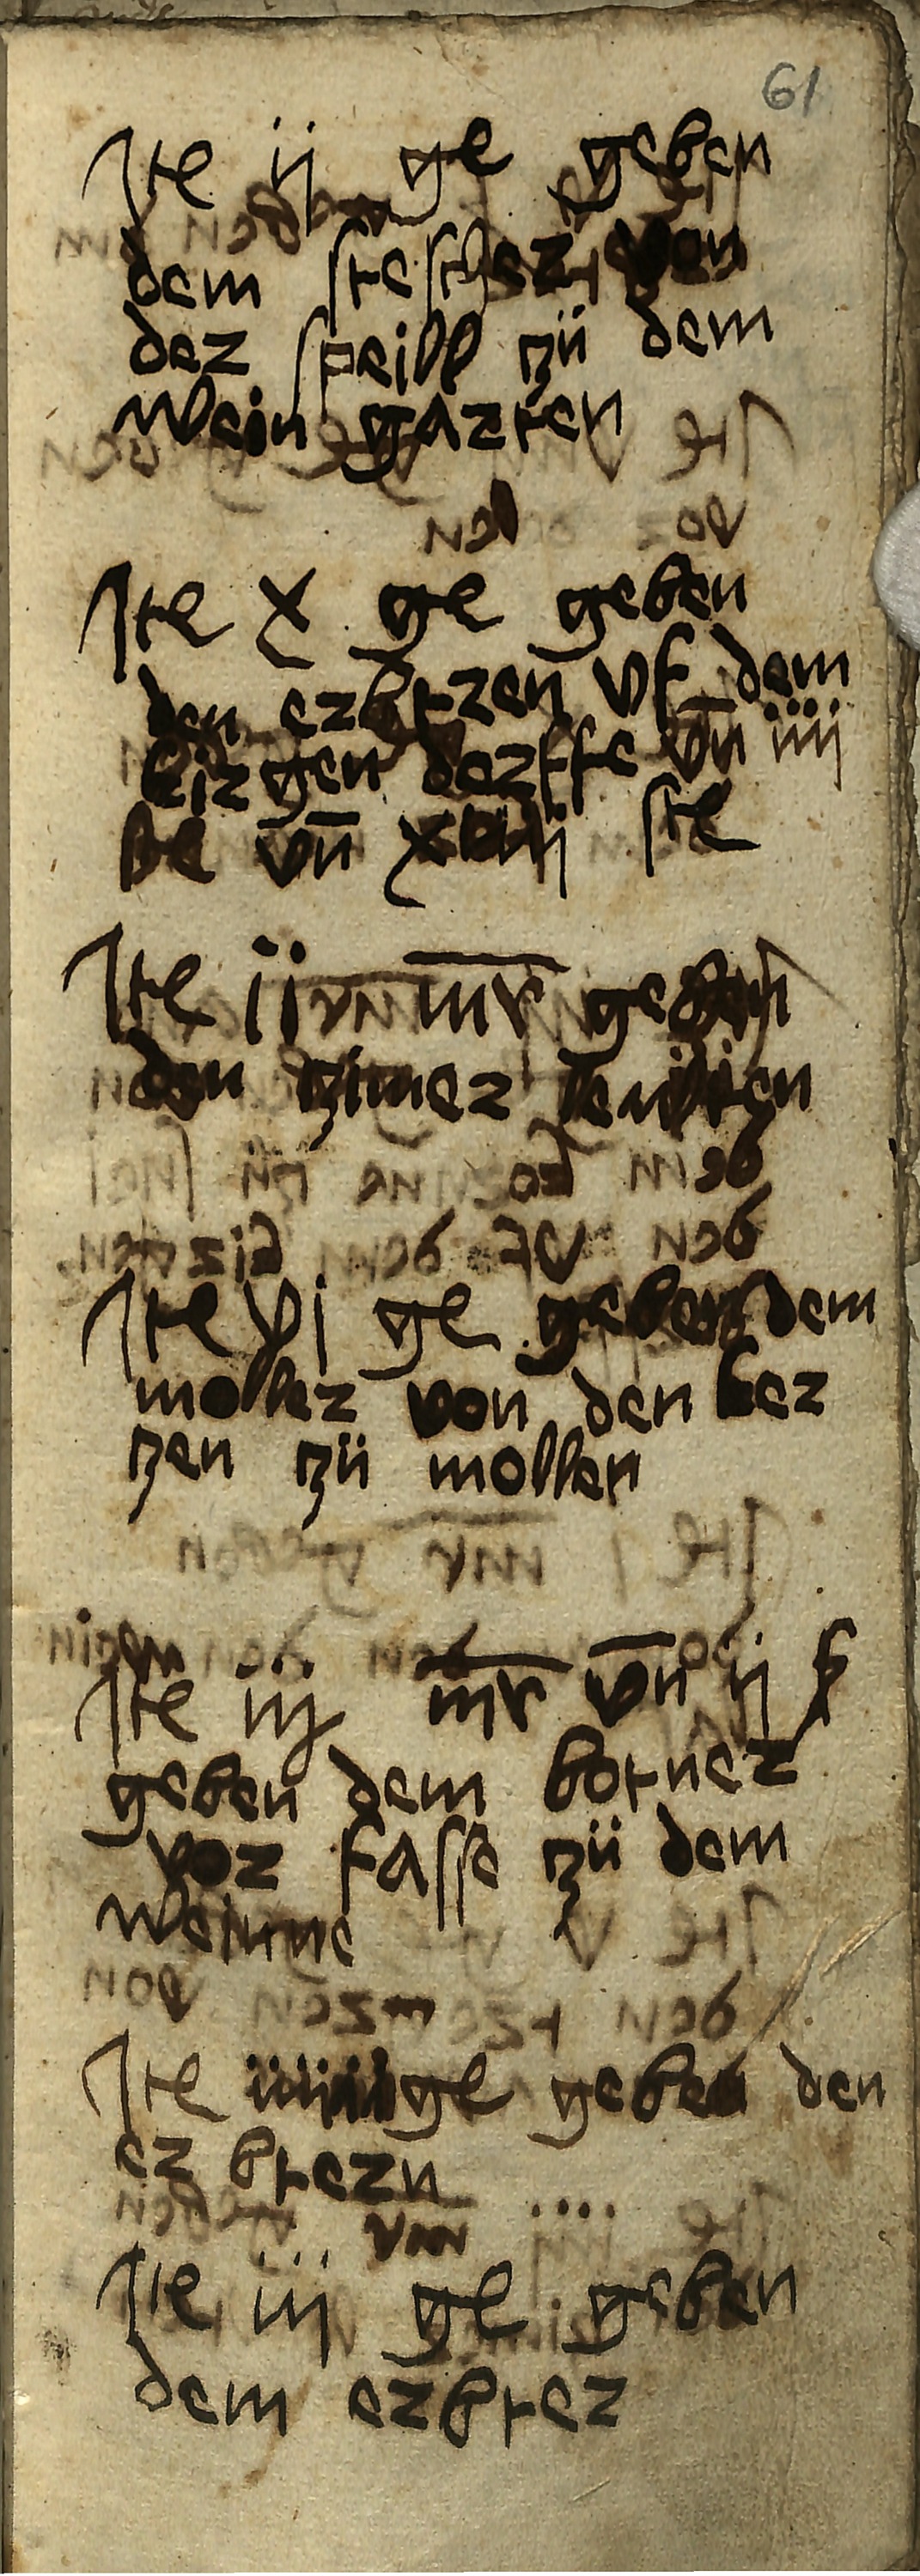 61
Ite ij ge geben
dem stescher von
der speill zü dem
Wein garten
Ite x ge geben
den erbtren vf dem
birgen derffe vn̄ iiij
be vn̄ xviij ste
Ite ii mr geben
den zimer leuten
Ite vi ge geben dem
moller von den ker
zen zü mollen
Ite iij mr vn̄ ij β
geben dem botner
vor fasse zü dem
Weinne
Ite ge geben den
er btern
Ite iij ge geben
dem erbter